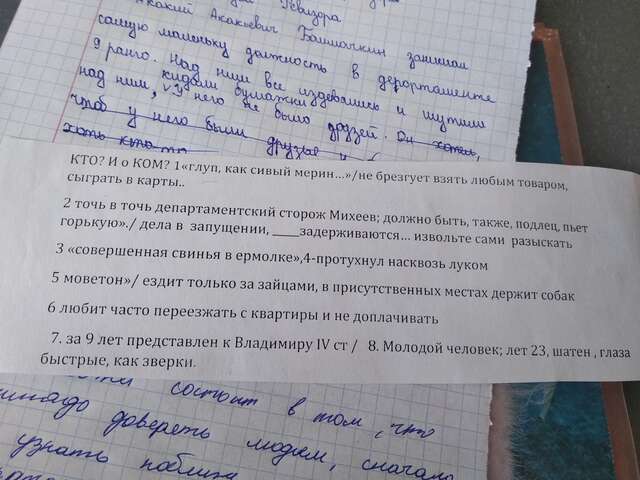 Ревизора
Акакий Акакьевич Башмачкин занимал
самую маленьку должность в деророртаменте
9 ранго. Над ним все издевались и шутили
над ним, кидали бумажки у него не было друзей. Он хотел,
чтоб у него были друзья и
хоть кто то
КТО? И о КОМ? 1«глуп, как сивый мерин...»/не брезгует взять любым товаром,
сыграть в карты..
2 точь в точь департаментский сторож Михеев; должно быть, также, подлец, пьет
горькую»./ дела в запущении, ____задерживаются... извольте сами разыскать
3 «совершенная свинья в ермолке»,4-протухнул насквозь луком
5 моветон»/ ездит только за зайцами, в присутственных местах держит собак
6 любит часто переезжать с квартиры и не доплачивать
7. за 9 лет представлен к Владимиру IV ст / 8. Молодой человек; лет 23, шатен , глаза
быстрые, как зверки.
состоит в том, что
надо доверять людям, сначала
узнать поближе